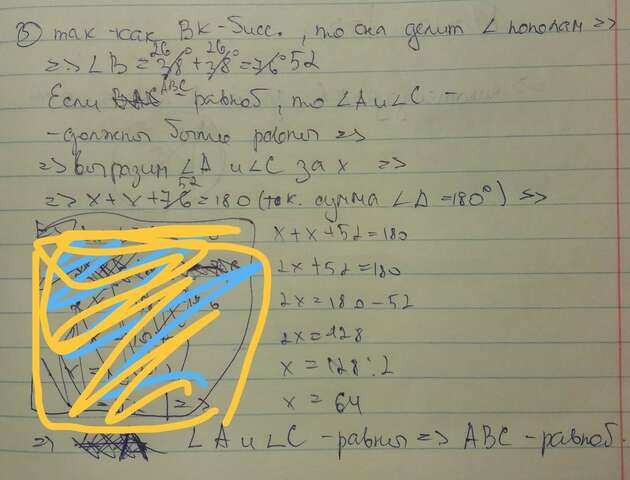 3) так как BK - бисс., то она делит ∠ пополам =>
=> ∠B = 26° + 26° = 52
Если ABC - равноб, то ∠A и ∠C -
- должны быть равны =>
=> выразим ∠A и ∠C за x =>
=> x + x + 52 = 180 (т.к. сумма ∠ Δ = 180°) =>
x + x + 52 = 180
2x + 52 = 180
2x = 180 - 52
2x = 128
x = 128 : 2
x = 64
=> ∠A и ∠C - равны => ABC - равноб.